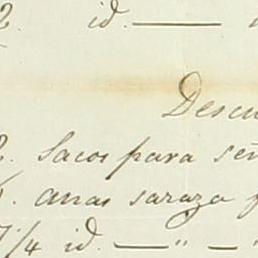 2. id. ———
Descu
2. Sacos para señ
1. anas saraza f
7 1/4 id. — " — "